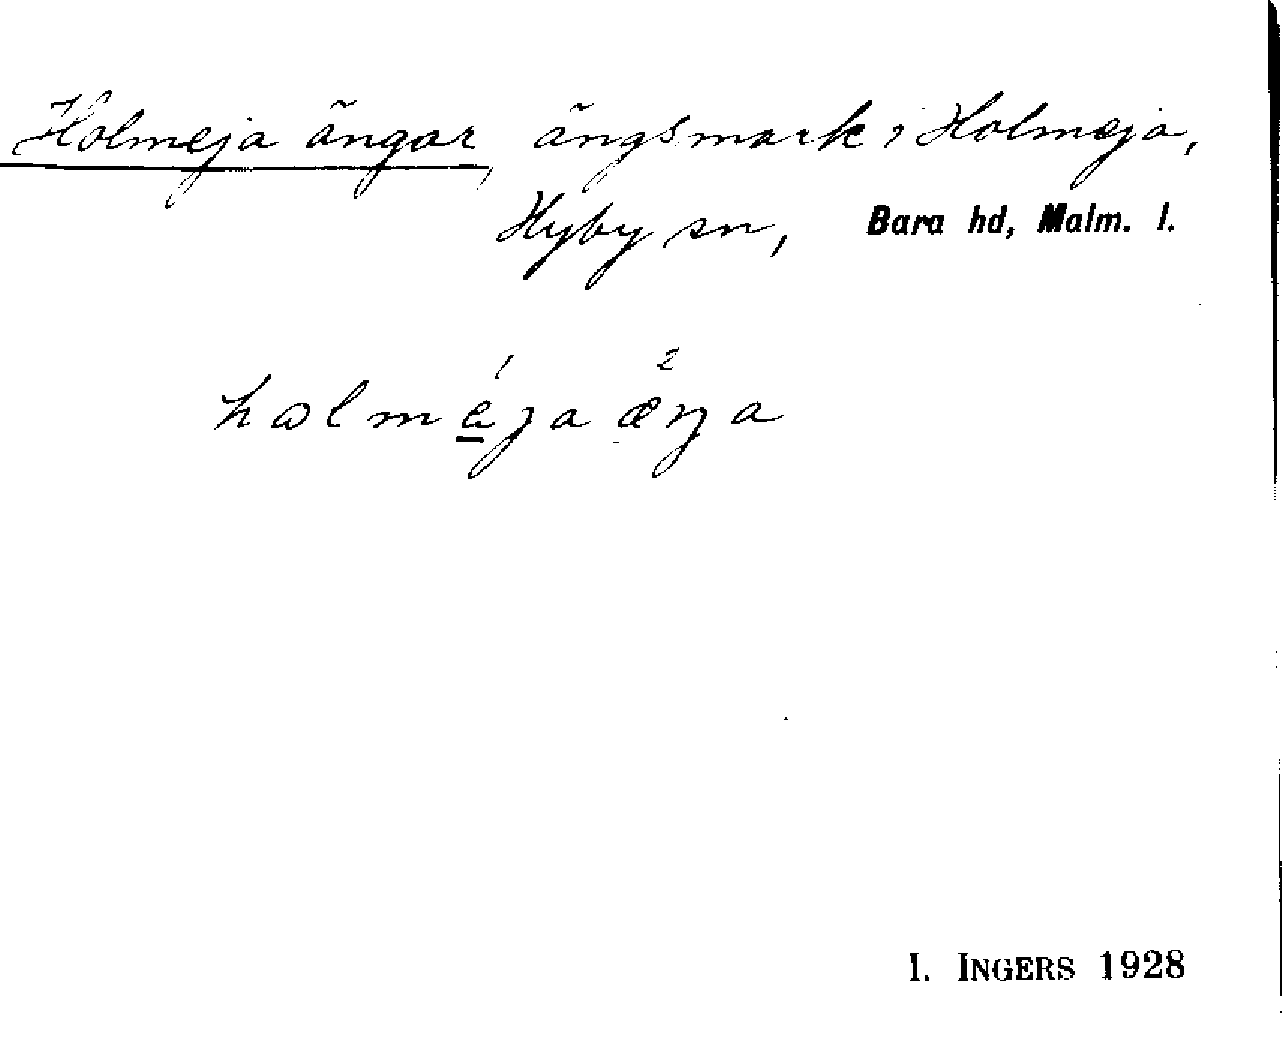 Holmeja ängar, ängsmark i Holmeja,
Hyby sn, Bara hd, Malm. l.
hɷlme̱´ja æ²ŋa
I. INGERS 1928